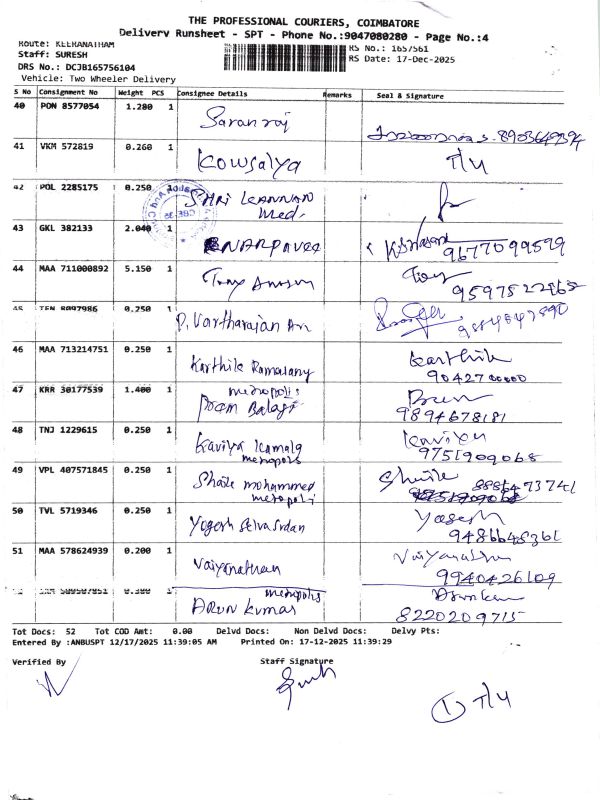 THE PROFESSIONAL COURIERS, COIMBATORE
Delivery Runsheet - SPT - Phone No.:9047080280 - Page No.:4
Route: KEERANATHAM
Staff: SURESH
RS No.: 1657561
DRS No.: DCJB165756104
RS Date: 17-Dec-2025
Vehicle: Two Wheeler Delivery
S No Consignment No Weight PCS Consignee Details Remarks Seal & Signature
40 PON 8577054 1.280 1 Saranraj
41 VKM 572819 0.260 1 Kowsalya T/4
42 POL 2285175 0.250 1 SHRI KANNAN
Med.
43 GKL 382133 2.040 1
9677099599
44 MAA 711000892 5.150 1 Tony
9597522968
45 TEN 8097986 0.250 1 P. Vartharajan
46 MAA 713214751 0.250 1 Karthik Ramalany Karthik
9042700000
47 KRR 30177539 1.400 1 metropolis
Prem Balaji
9894678181
48 TNJ 1229615 0.250 1 Kaviya Kamala Kaviya
metropolis 9751909068
49 VPL 407571845 0.250 1 mohammed
metropoli
50 TVL 5719346 0.250 1 Yogesh Selva Sudan Yogesh
9486648361
51 MAA 578624939 0.200 1 Vaiyanathan
9940426109
metropolis
0.300 1 ARUN KUMAR
8220209715
Tot Docs: 52 Tot COD Amt: 0.00 Delvd Docs: Non Delvd Docs: Delvy Pts:
Entered By :ANBUSPT 12/17/2025 11:39:05 AM Printed On: 17-12-2025 11:39:29
Verified By Staff Signature
1 T/4